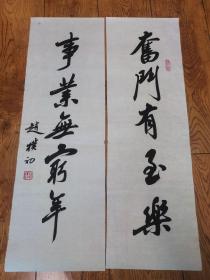 奮鬥有至樂
事業無窮年
趙樸初